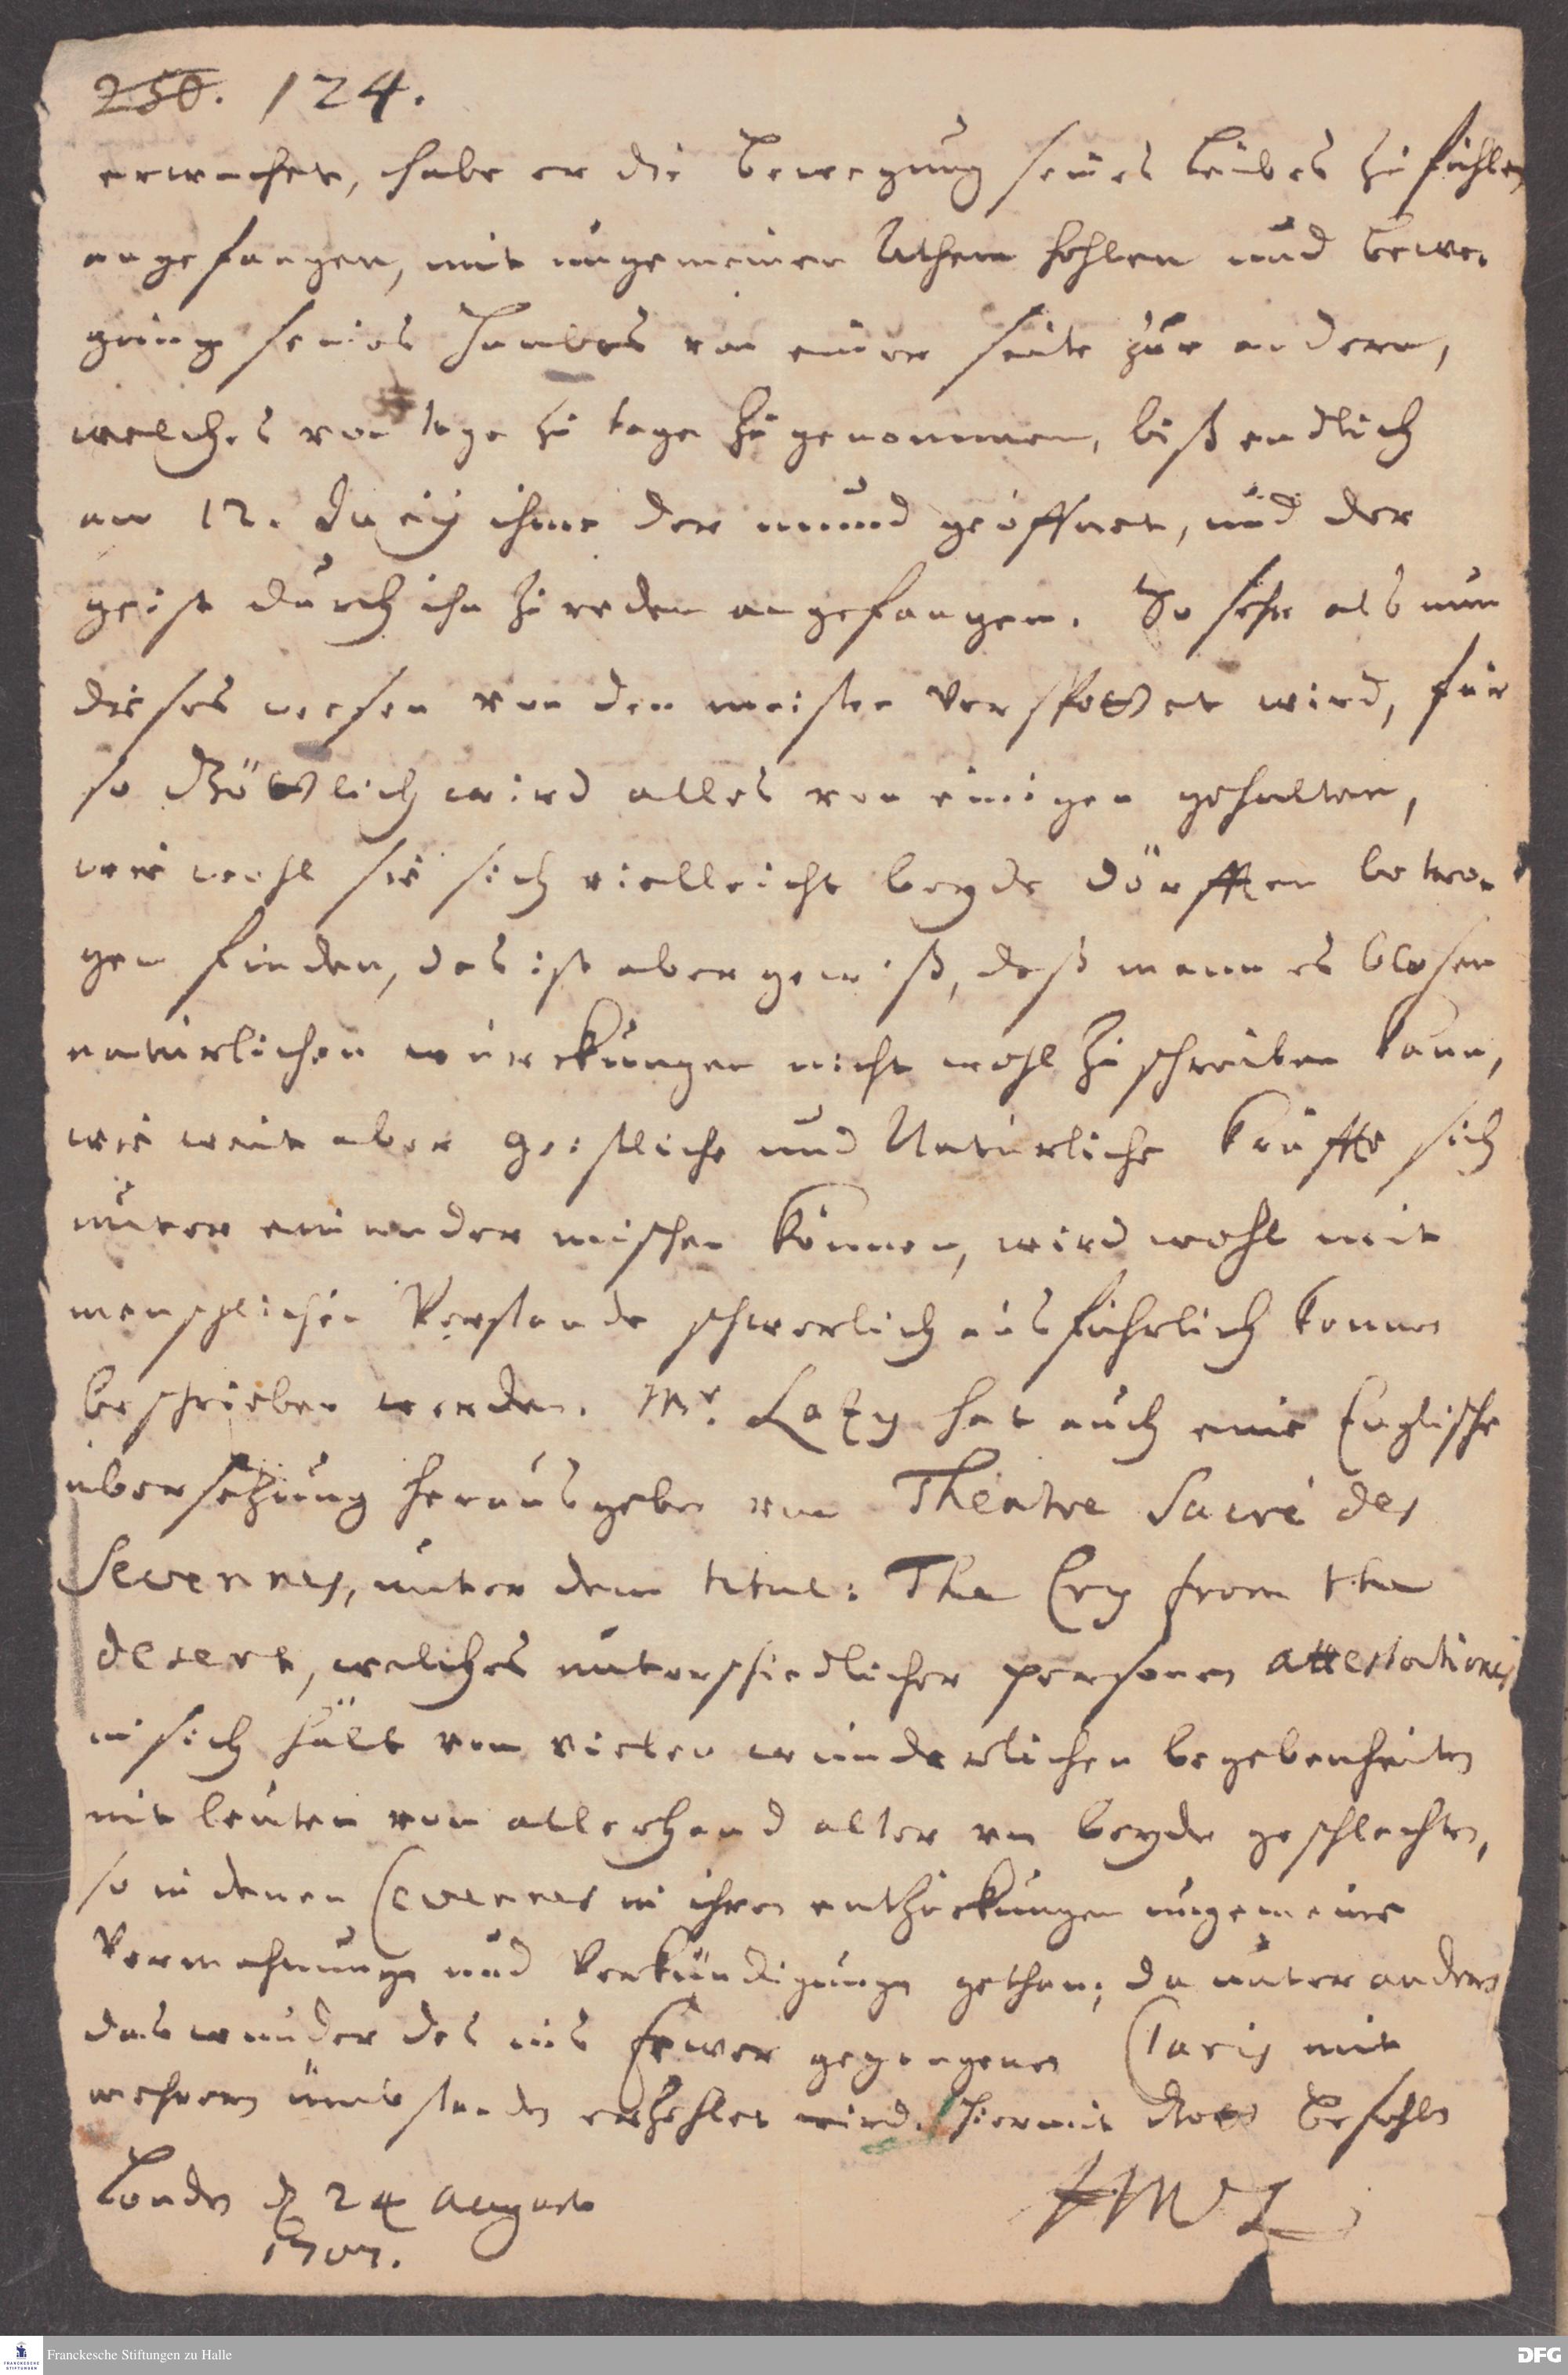 250. 124.
erwachet, habe er die bewegung seines Leibes zu fühlen
angefangen, mit ungemeinen Athem hohlen und bewe-
gung seines Hauptes von einer seite zur andern,
welches von tage zu tage zugenommen, biß endlich
am 12. ihme der mund geöffnet, und der
geist durch ihn zu reden angefangen. So sehr als nun
dieses wesen von den meisten verspottet wird, für
so Göttlich wird alles von einigen gehalten,
wie wohl sie sich vielleicht beyde dörfften betro-
gen finden, das ist aber gewiß, daß mann es blosen
natürlichen würckungen nicht wohl zu schreiben kann,
wie weit aber geistliche und Natürliche kräffte sich
unter einander mischen können, wird wohl mit
menschlichen Verstande schwerlich ausführlich können
beschrieben werden. Mr. Lacy hat auch eine Englische
übersetzung herausgeben von Theatre Sacré des
Sevennes, unter dem titul: The Cry from the
desert, welches unterschiedlicher personen attestationes
in sich hält von vielen wunderlichen begebenheiten
mit leuten von allerhand alter von beyde geschlechten,
so in denen Cevennes in ihren entzückungen ungemeine
Vermahnungen und Verkündigungen gethan; da unter andern
das wunder des ins fewer gegangenen Claris mit
mehrern umbständen erzehlet wird. Hiermit Gott befohlen
Londen d 24 August
1707.